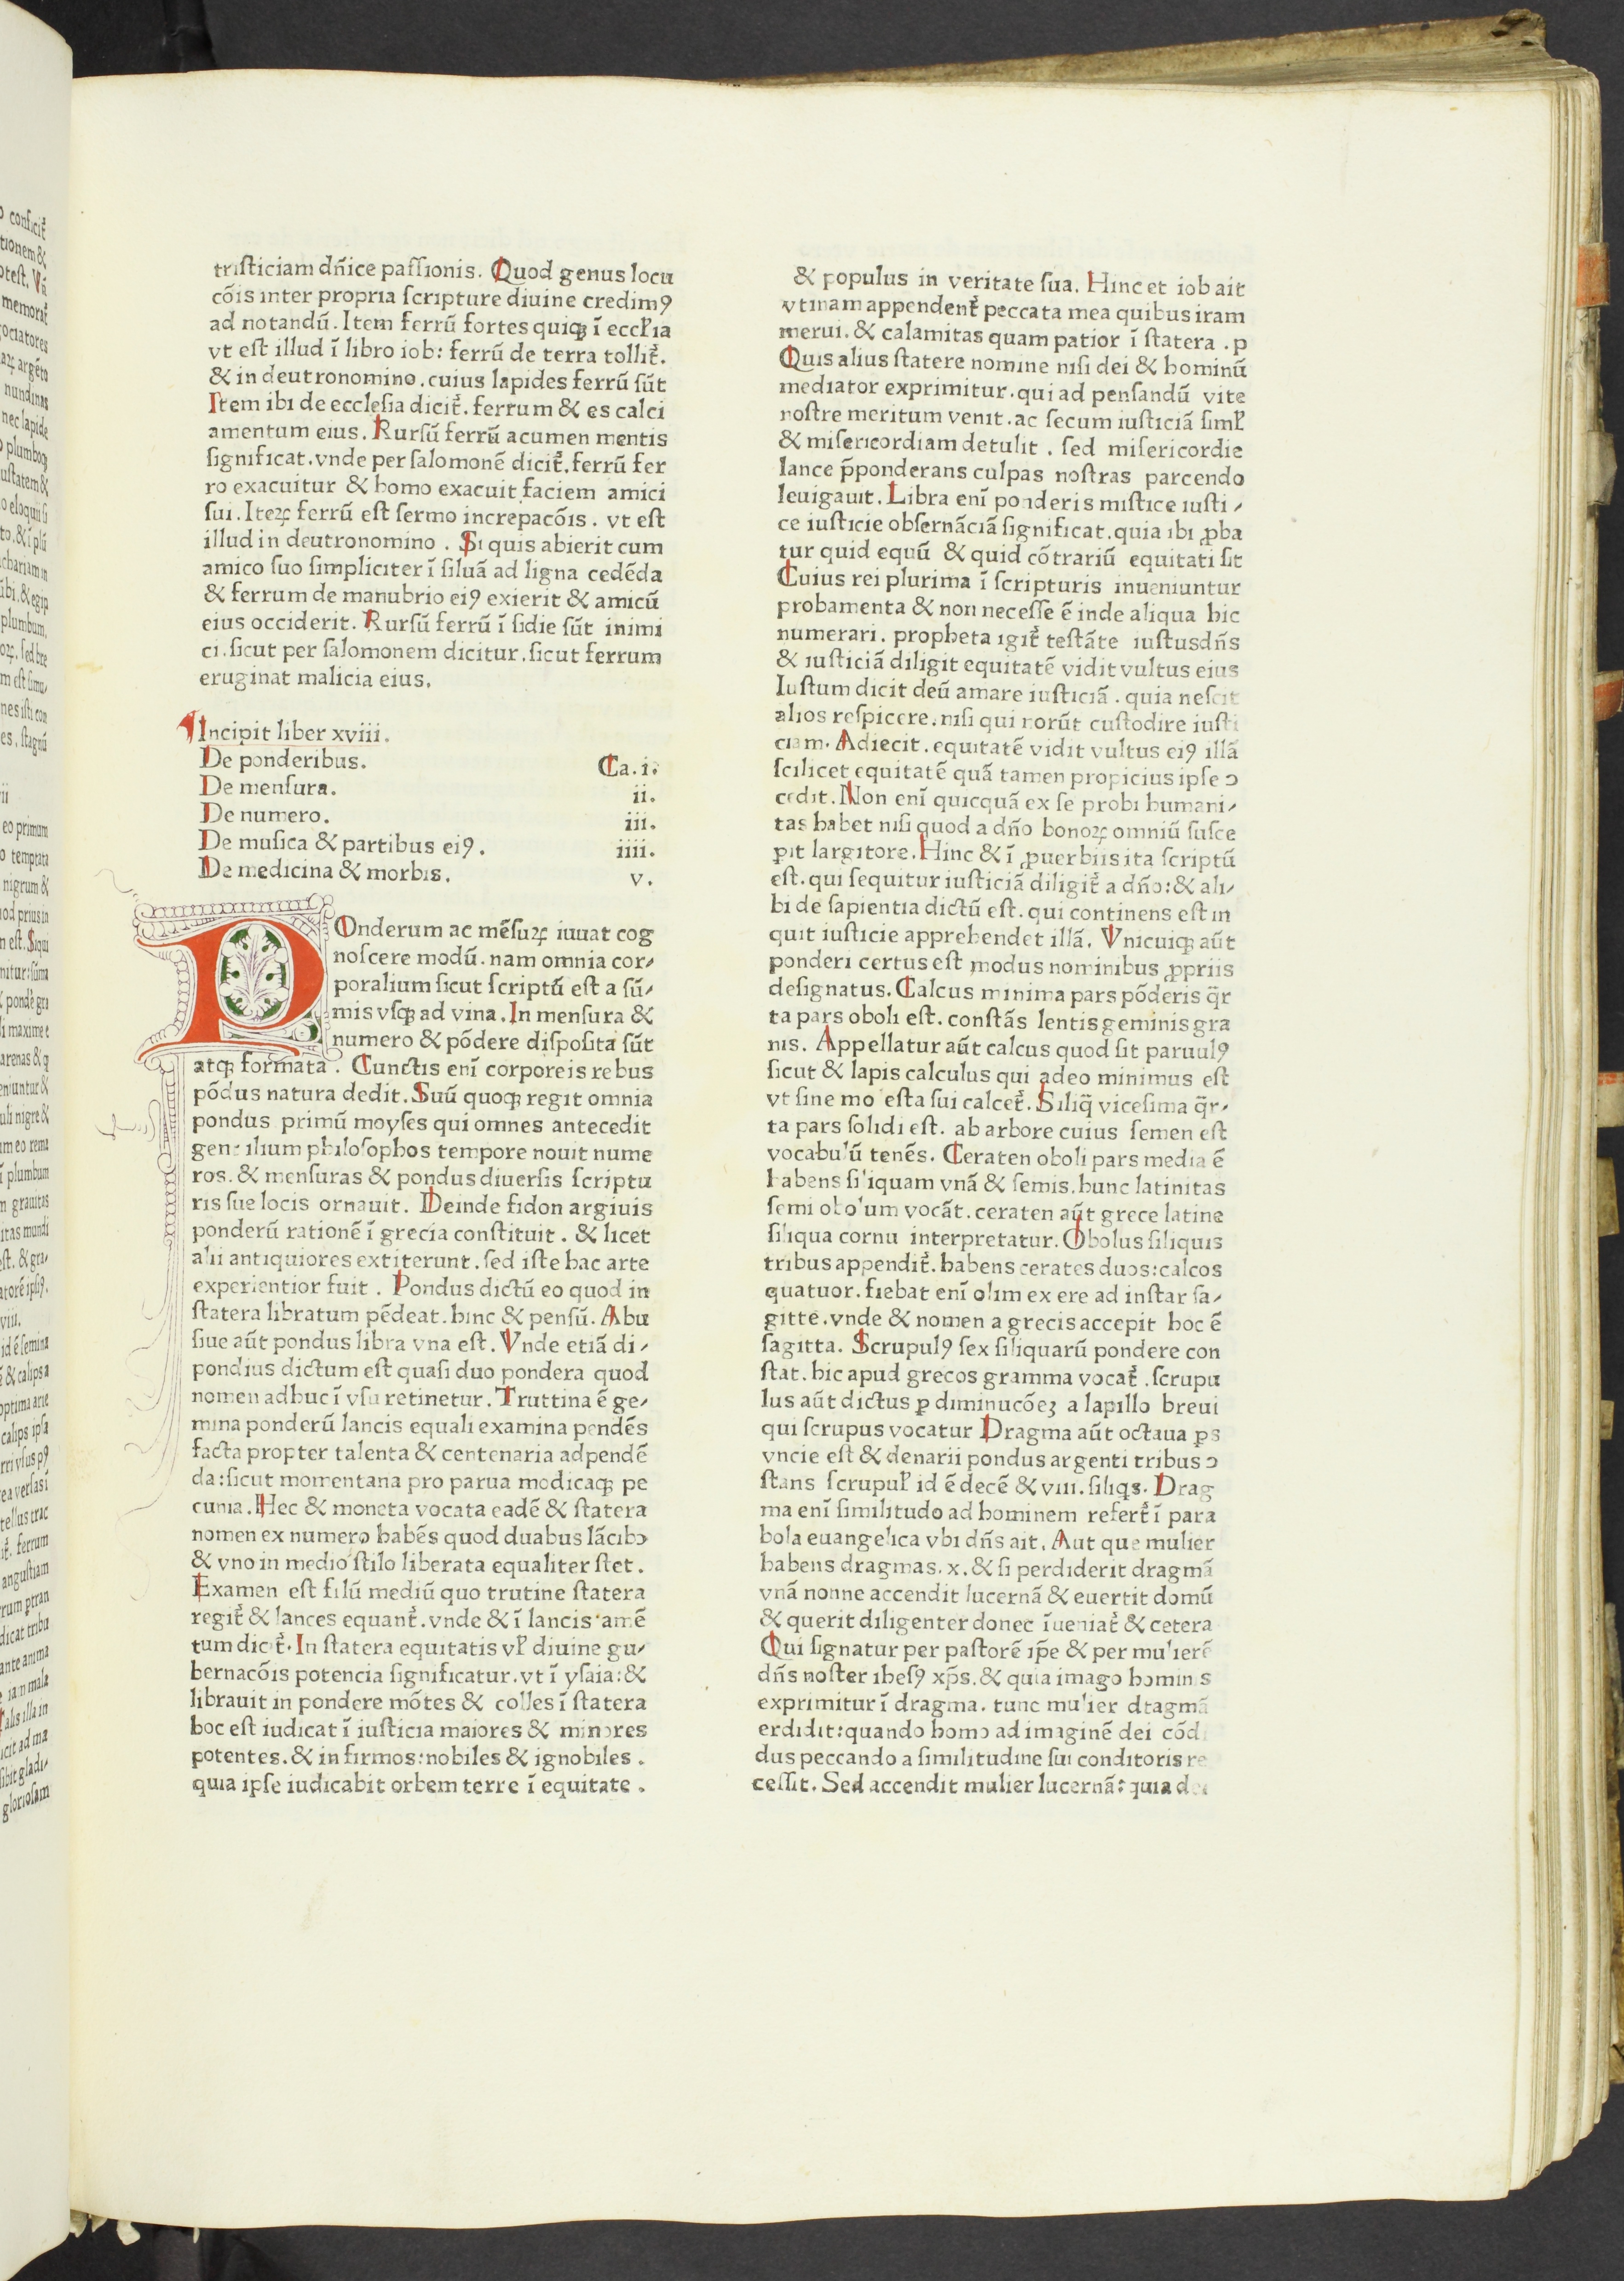 tristiciam dn̄ice passionis. Quod genus locu
cōis inter propria scripture diuine credimꝰ
ad notandū. Item ferrū fortes quiqꝫ ī eccl'ia
vt est illud ī libro iob: ferrū de terra tollit᷑.
& in deutronomino. cuius lapides ferrū sūt
Item ibi de ecclesia dicit᷑. ferrum & es calci
amentum eius. Rursū ferrū acumen mentis
significat. vnde per salomonē dicit᷑. ferrū fer
ro exacuitur & homo exacuit faciem amici
sui. Iteꝝ ferrū est sermo increpacōis. vt est
illud in deutronomino. Si quis abierit cum
amico suo simpliciter ī siluā ad ligna cedēda
& ferrum de manubrio eiꝰ exierit & amicū
eius occiderit. Rursū ferrū ī sidie sūt inimi
ci. sicut per salomonem dicitur. sicut ferrum
eruginat malicia eius.
Incipit liber xviii.
De ponderibus. Ca. i.
De mensura. ii.
De numero. iii.
De musica & partibus eiꝰ. iiii.
De medicina & morbis. v.
POnderum ac mēsuꝝ iuuat cog
noscere modū. nam omnia cor⸗
poralium sicut scriptū est a sū⸗
mis vsqꝫ ad vina. In mensura &
numero & pōdere disposita sūt
atqꝫ formata. Cunctis enī corporeis rebus
pōdus natura dedit. Suū quoqꝫ regit omnia
pondus primū moyses qui omnes antecedit
gentilium philosophos tempore nouit nume
ros. & mensuras & pondus diuersis scriptu
ris sue locis ornauit. Deinde fidon argiuis
ponderū rationē ī grecia constituit. & licet
alii antiquiores extiterunt. sed iste hac arte
experientior fuit. Pondus dictū eo quod in
statera libratum pēdeat. hinc & pensū. Abu
siue aūt pondus libra vna est. Vnde etiā di⸗
pondius dictum est quasi duo pondera quod
nomen adhuc ī vsu retinetur. Truttina ē ge⸗
mina ponderū lancis equali examina pendēs
facta propter talenta & centenaria adpendē
da: sicut momentana pro parua modicaqꝫ pe
cunia. Hec & moneta vocata eadē & statera
nomen ex numero habēs quod duabus lācibꝫ
& vno in medio stilo liberata equaliter stet.
Examen est filū mediū quo trutine statera
regit᷑ & lances equant᷑. vnde & ī lancis amē
tum dicit᷑. In statera equitatis vl' diuine gu⸗
bernacōis potencia significatur. vt ī ysaia: &
librauit in pondere mōtes & colles ī statera
hoc est iudicat ī iusticia maiores & minores
potentes. & infirmos: nobiles & ignobiles.
quia ipse iudicabit orbem terre ī equitate.
& populus in veritate sua. Hinc et iob ait
vtinam appendent᷑ peccata mea quibus iram
merui. & calamitas quam patior ī statera. p
Quis alius statere nomine nisi dei & hominū
mediator exprimitur. qui ad pensandū vite
nostre meritum venit. ac secum iusticiā simł
& misericordiam detulit. sed misericordie
lance p̄ponderans culpas nostras parcendo
leuigauit. Libra enī ponderis mistice iusti⸗
ce iusticie obsernāciā significat. quia ibi ꝓba
tur quid equū & quid cōtrariū equitati sit
Cuius rei plurima ī scripturis inueniuntur
probamenta & non necesse ē inde aliqua hic
numerari. propheta igit᷑ testāte iustus dn̄s
& iusticiā diligit equitatē vidit vultus eius
Iustum dicit deū amare iusticiā. quia nescit
alios respicere. nisi qui norūt custodire iusti
ciam. Adiecit. equitatē vidit vultus eiꝰ illā
scilicet equitatē quā tamen propicius ipse ɔ
cedit. Non enī quicquā ex se probi humani⸗
tas habet nisi quod a dn̄o bonoꝝ omniū susce
pit largitore. Hinc & ī ꝓuerbiis ita scriptū
est. qui sequitur iusticiā diligit᷑ a dn̄o: & ali⸗
bi de sapientia dictū est. qui continens est in
quit iusticie apprehendet illā. Vnicuiqꝫ aūt
ponderi certus est modus nominibus ꝓpriis
designatus. Calcus minima pars pōderis q̄r
ta pars oboli est. constās lentis geminis gra
nis. Appellatur aūt calcus quod sit paruulꝰ
sicut & lapis calculus qui adeo minimus est
vt sine mo esta sui calcet᷑. Siliq̄ vicesima q̄r⸗
ta pars solidi est. ab arbore cuius semen est
vocabulū tenēs. Ceraten oboli pars media ē
habens siliquam vnā & semis. hunc latinitas
semi obolum vocāt. ceraten aūt grece latine
siliqua cornu interpretatur. Obolus siliquis
tribus appendit᷑. habens cerates duos: calcos
quatuor. fiebat enī olim ex ere ad instar sa⸗
gitte. vnde & nomen a grecis accepit hoc ē
sagitta. Scrupulꝰ sex siliquarū pondere con
stat. hic apud grecos gramma vocat᷑. scrupu
lus aūt dictus ꝑ diminucōeꝫ a lapillo breui
qui scrupus vocatur Dragma aūt octaua ꝑs
vncie est & denarii pondus argenti tribus ɔ
stans scrupul' id ē decē & viii. siliqꝫ. Drag
ma enī similitudo ad hominem refert᷑ ī para
bola euangelica vbi dn̄s ait. Aut que mulier
habens dragmas. x. & si perdiderit dragmā
vnā nonne accendit lucernā & euertit domū
& querit diligenter donec īueniat᷑ & cetera
Qui signatur per pastorē ip̄e & per mulierē
dn̄s noster ihesꝰ xp̄s. & quia imago hominis
exprimitur ī dragma. tunc mulier dtagmā
erdidit: quando homo ad imaginē dei cōd
dus peccando a similitudine sui conditoris re
cessit. Sed accendit mulier lucernā: quia dei